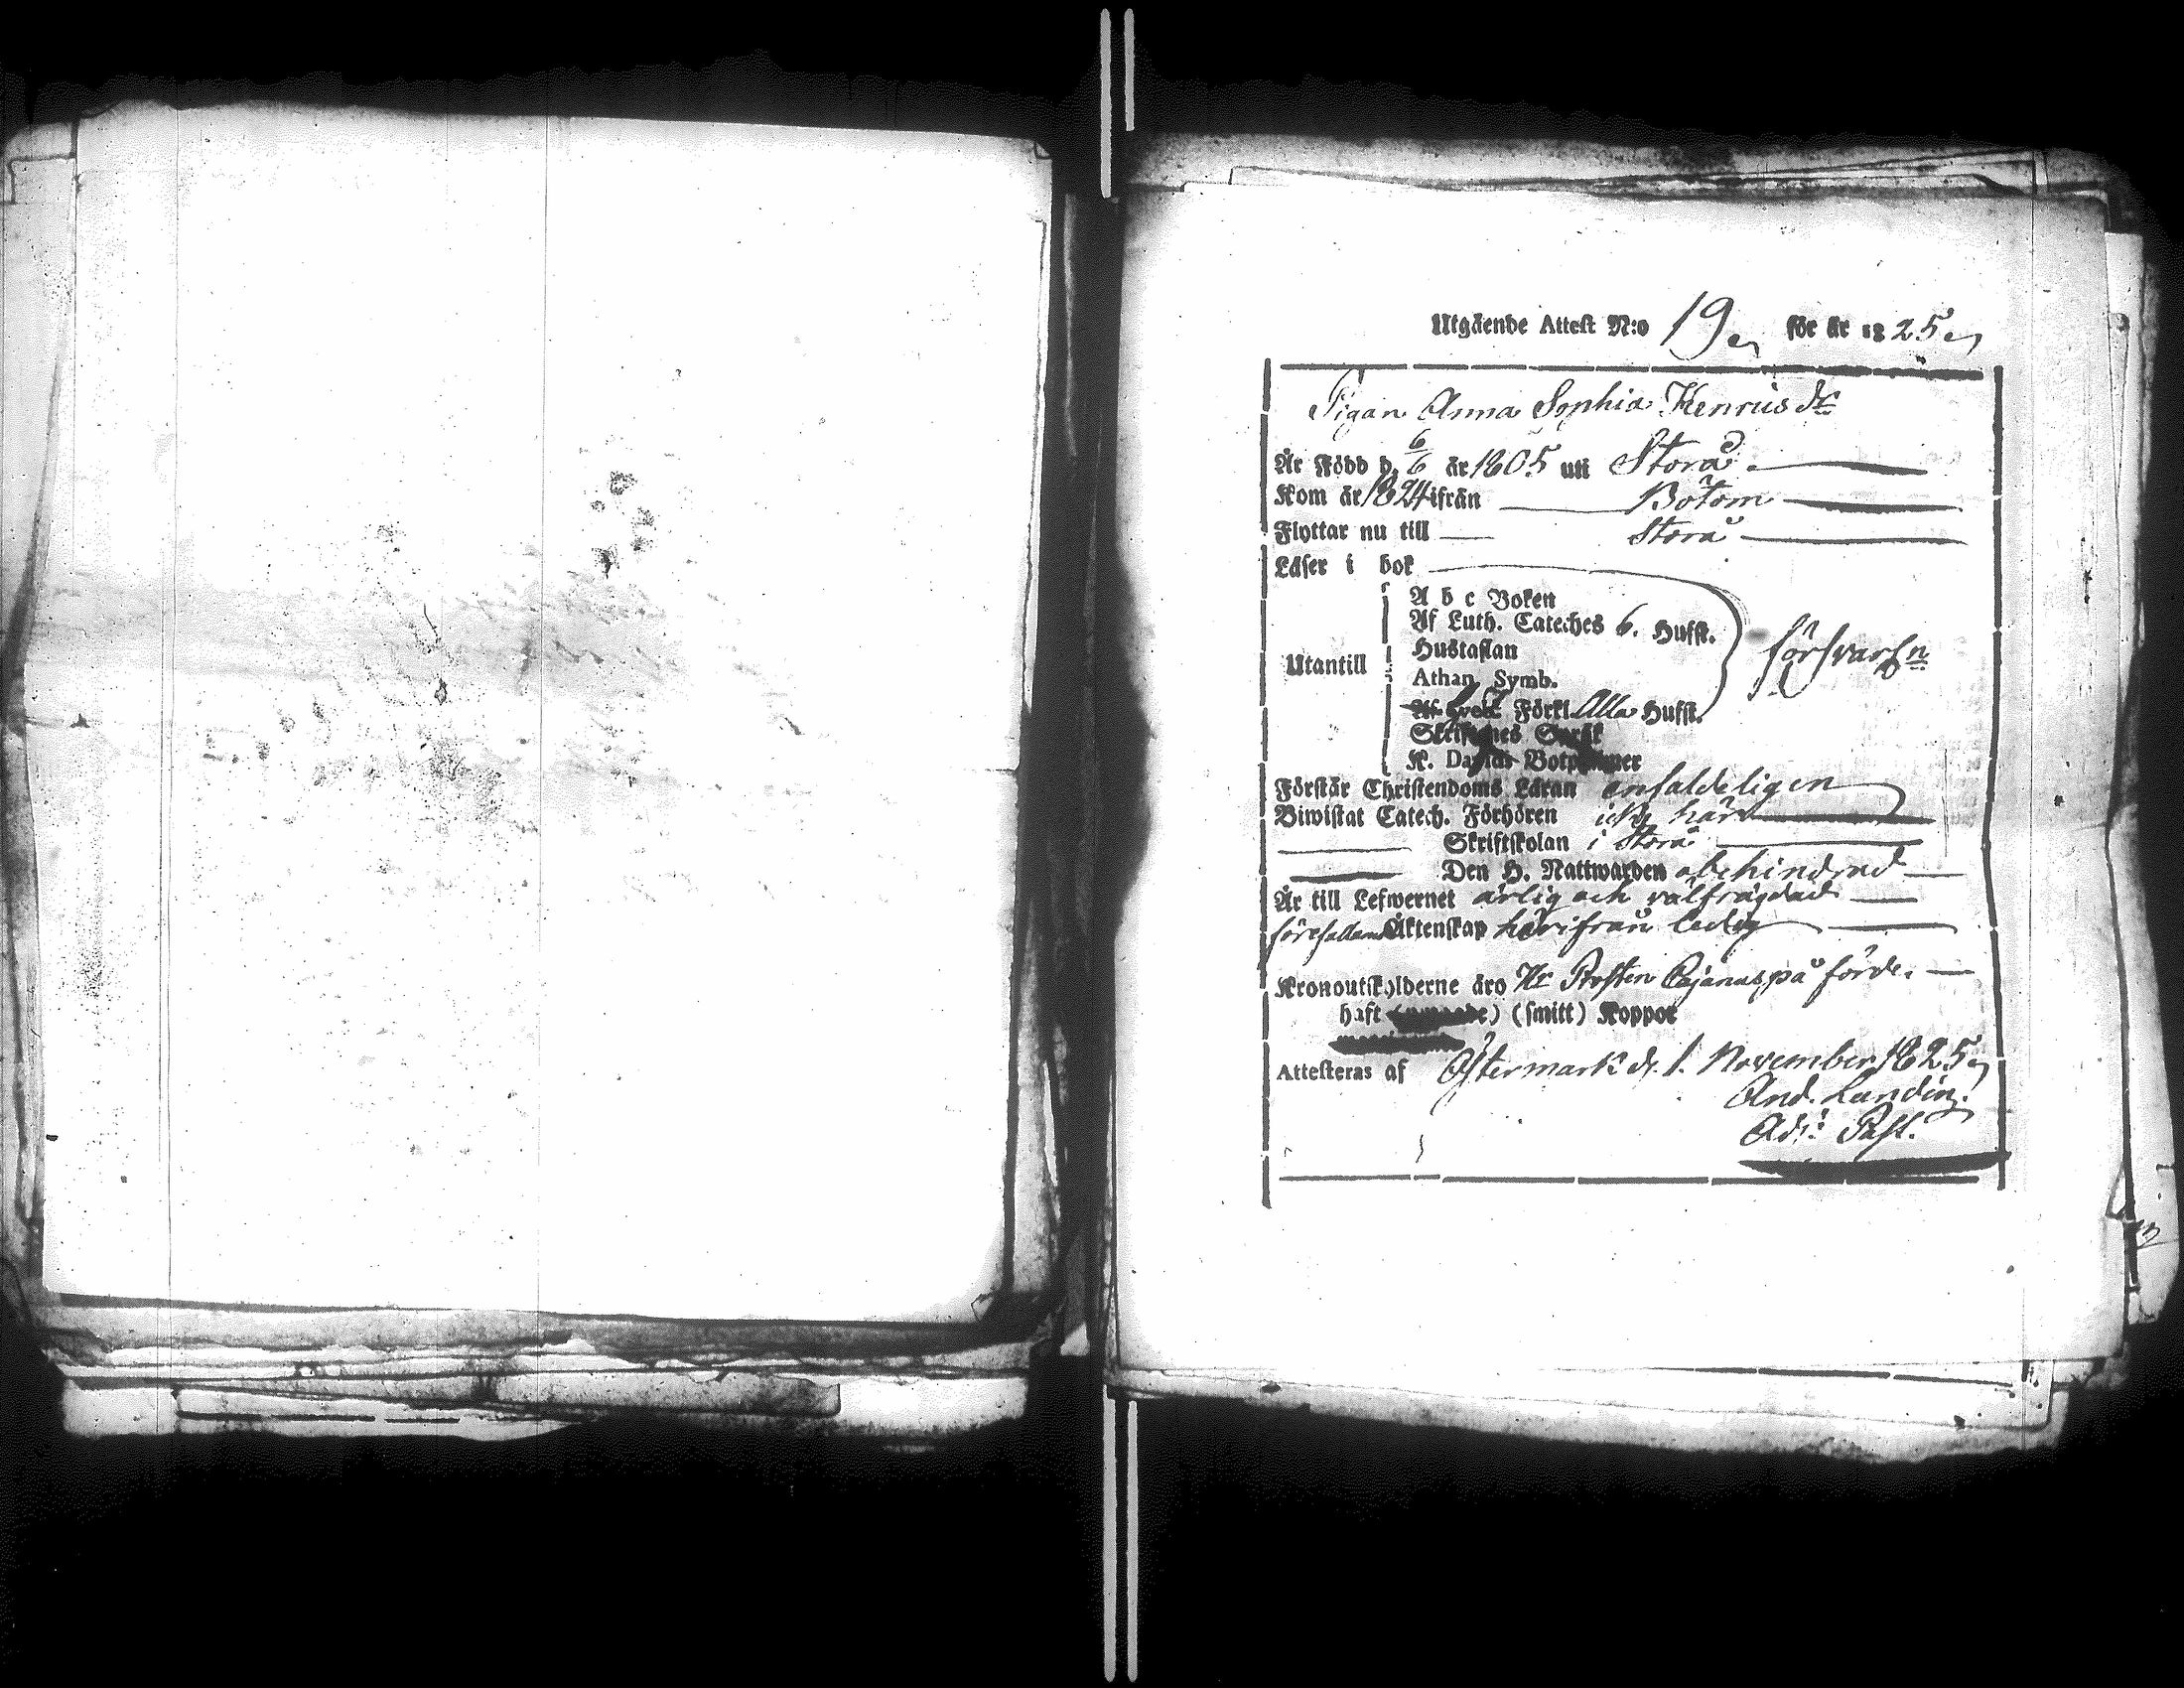 Utgående Attest N:o 19 för år 1825
Pigan Anna Sophia Henricsdr
Är Född d. 6/6 år 1805 uti Storå
Kom år 1824 ifrån Bötom
Flyttar nu till Storå
Läser i bok
A b c Boken
Af Luth. Cateches 6. Hufst.
Hustaflan
Utantill
försvarln
Athan. Symb.
Förkl. Alla Hufst.
Skriftenes Språk
K. Davids Botpsalmer
Förstår Christendoms Läran enfaldeligen
Biwistat Catech. Förhören icke här
Skriftskolan i Storå
Den H. Nattwarden obehindrad
Är till Lefwernet ärlig och välfrägdad
förefallande Äktenskap härifrån ledig
Kronoutskylderne äro Hr Prosten Cajanus på förde.
haft (smitt) Koppor
Attesteras af Östermark d. 1. November 1825
And. Lundin.
Adj: Past.